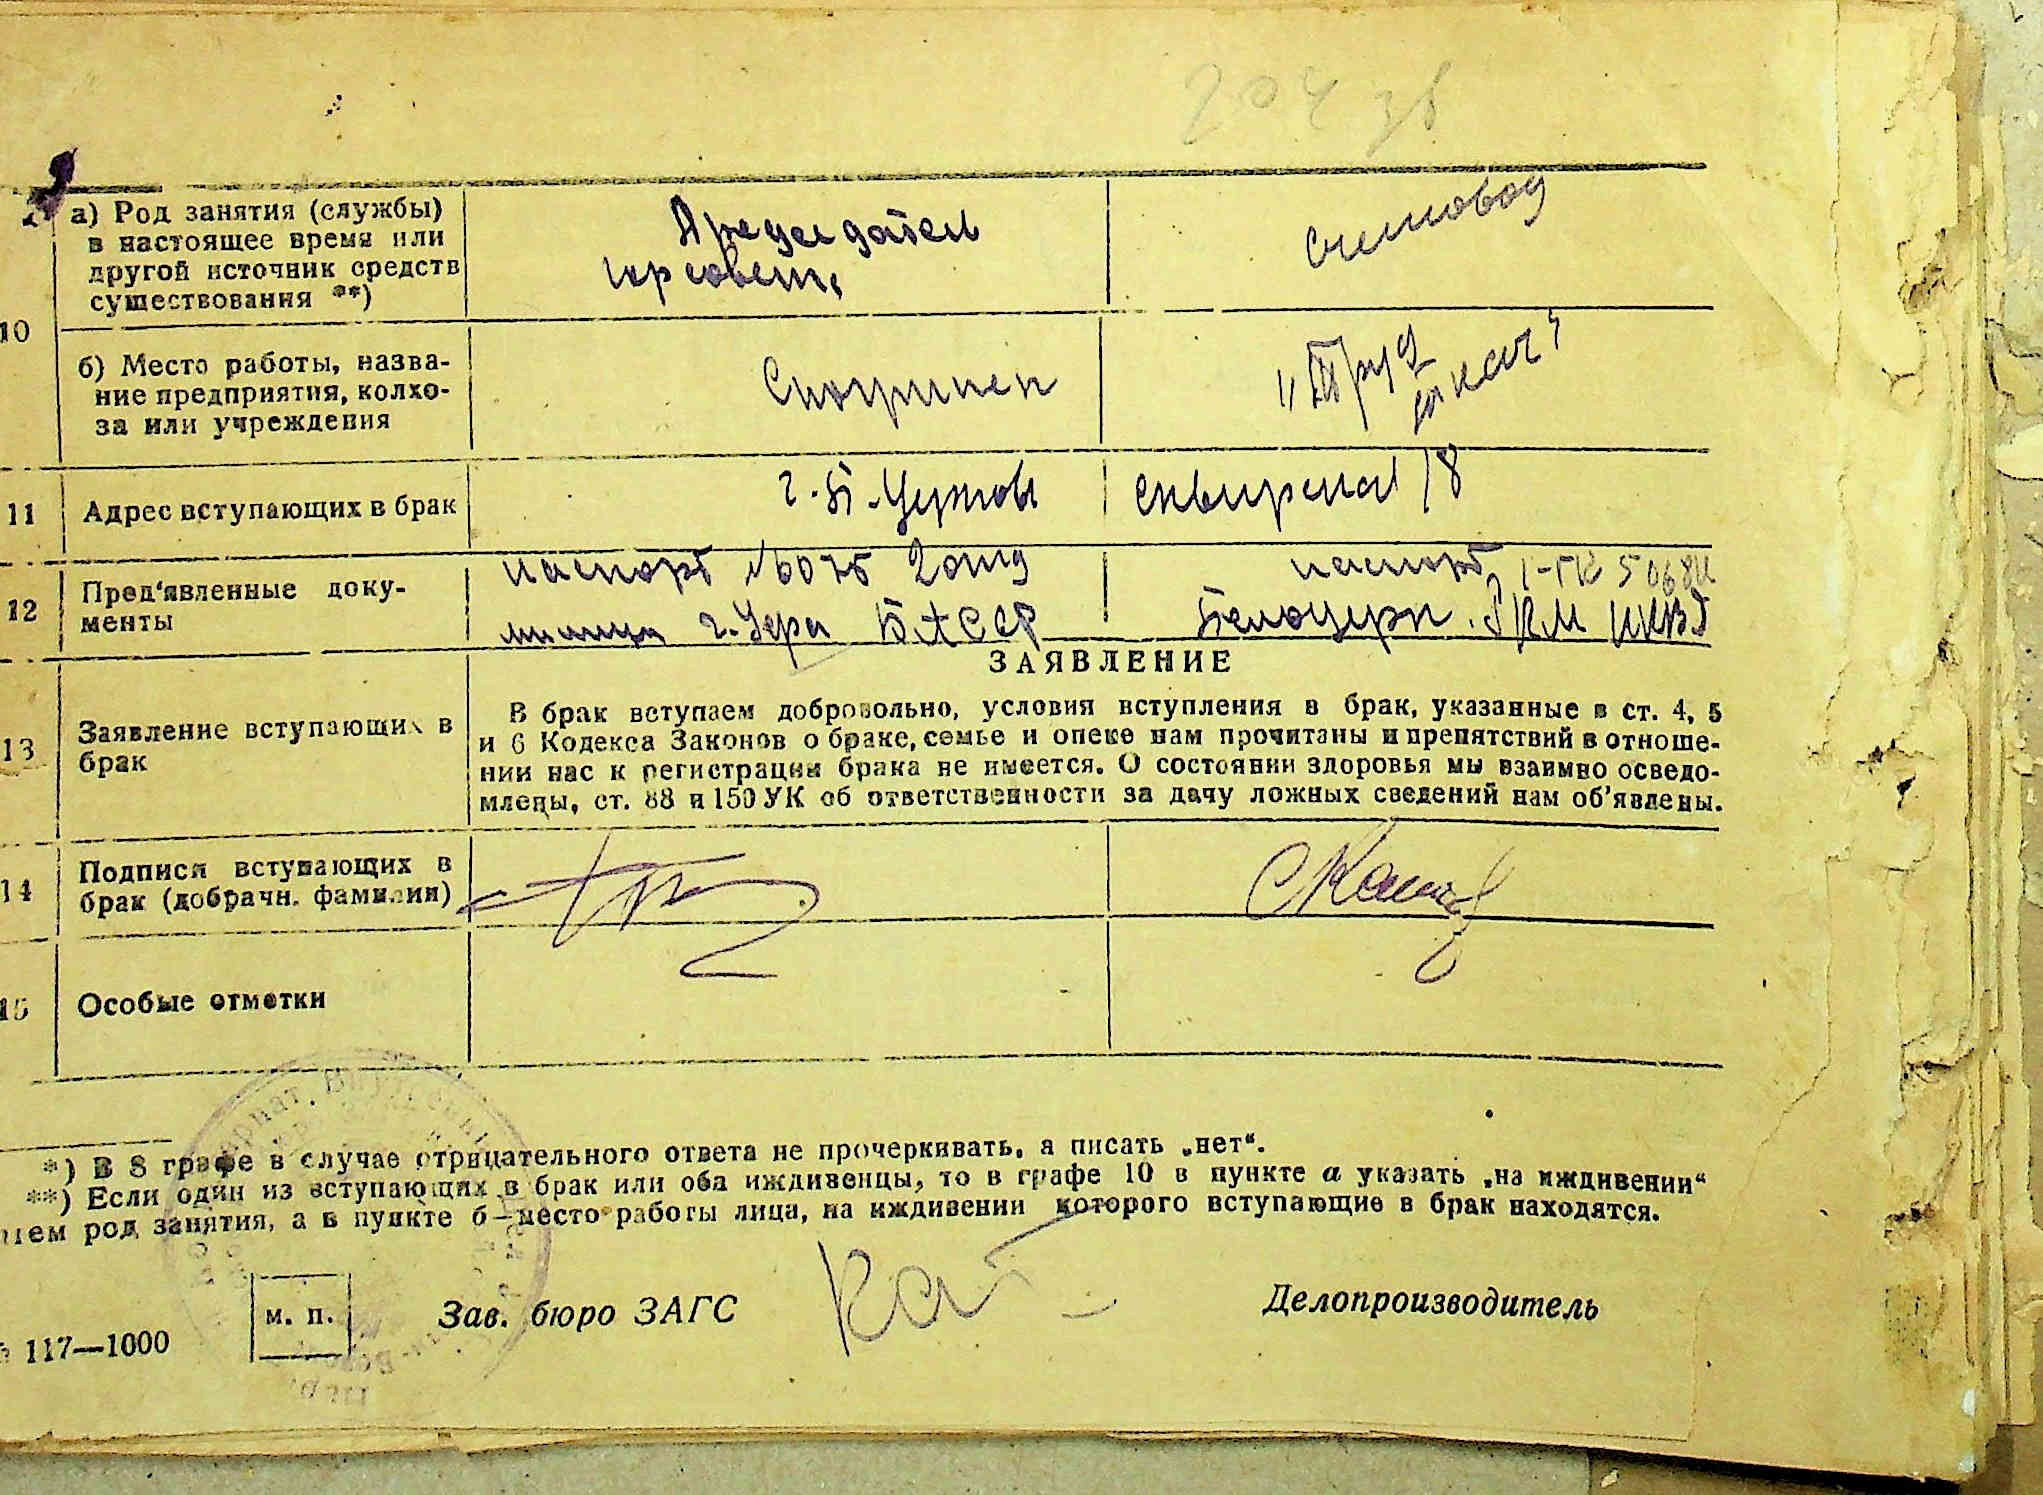 204 зв
а) Род занятия (службы)
в настоящее время или
другой источник средств
существования **)
Председатель
горсовета
Счетовод
10
б) Место работы, назва-
ние предприятия, колхо-
за или учреждения
"Труд
ткач"
11
Адрес вступающих в брак
г. Б. Церковь
сквирская 18
12
Пред'явленные доку-
менты
паспорт
паспорт
милиции г. Уфа БАССР
Белоцерк. РКМ НКВД
ЗАЯВЛЕНИЕ
13
Заявление вступающих в
брак
В брак вступаем добровольно, условия вступления в брак, указанные в ст. 4, 5
и 6 Кодекса Законов о браке, семье и опеке нам прочитаны и препятствий в отноше-
нии нас к регистрации брака не имеется. О состоянии здоровья мы взаимно осведо-
млены, ст. 88 и 150 УК об ответственности за дачу ложных сведений нам об'явлены.
14
Подписи вступающих в
брак (добрачн. фамилии)
15
Особые отметки
*) В 8 графе в случае отрицательного ответа не прочеркивать, а писать „нет“.
**) Если один из вступающих в брак или оба иждивенцы, то в графе 10 в пункте а указать „на иждивении“
чем род занятия, а в пункте б—место работы лица, на иждивении которого вступающие в брак находятся.
м. п.
Зав. бюро ЗАГС
Делопроизводитель
117—1000